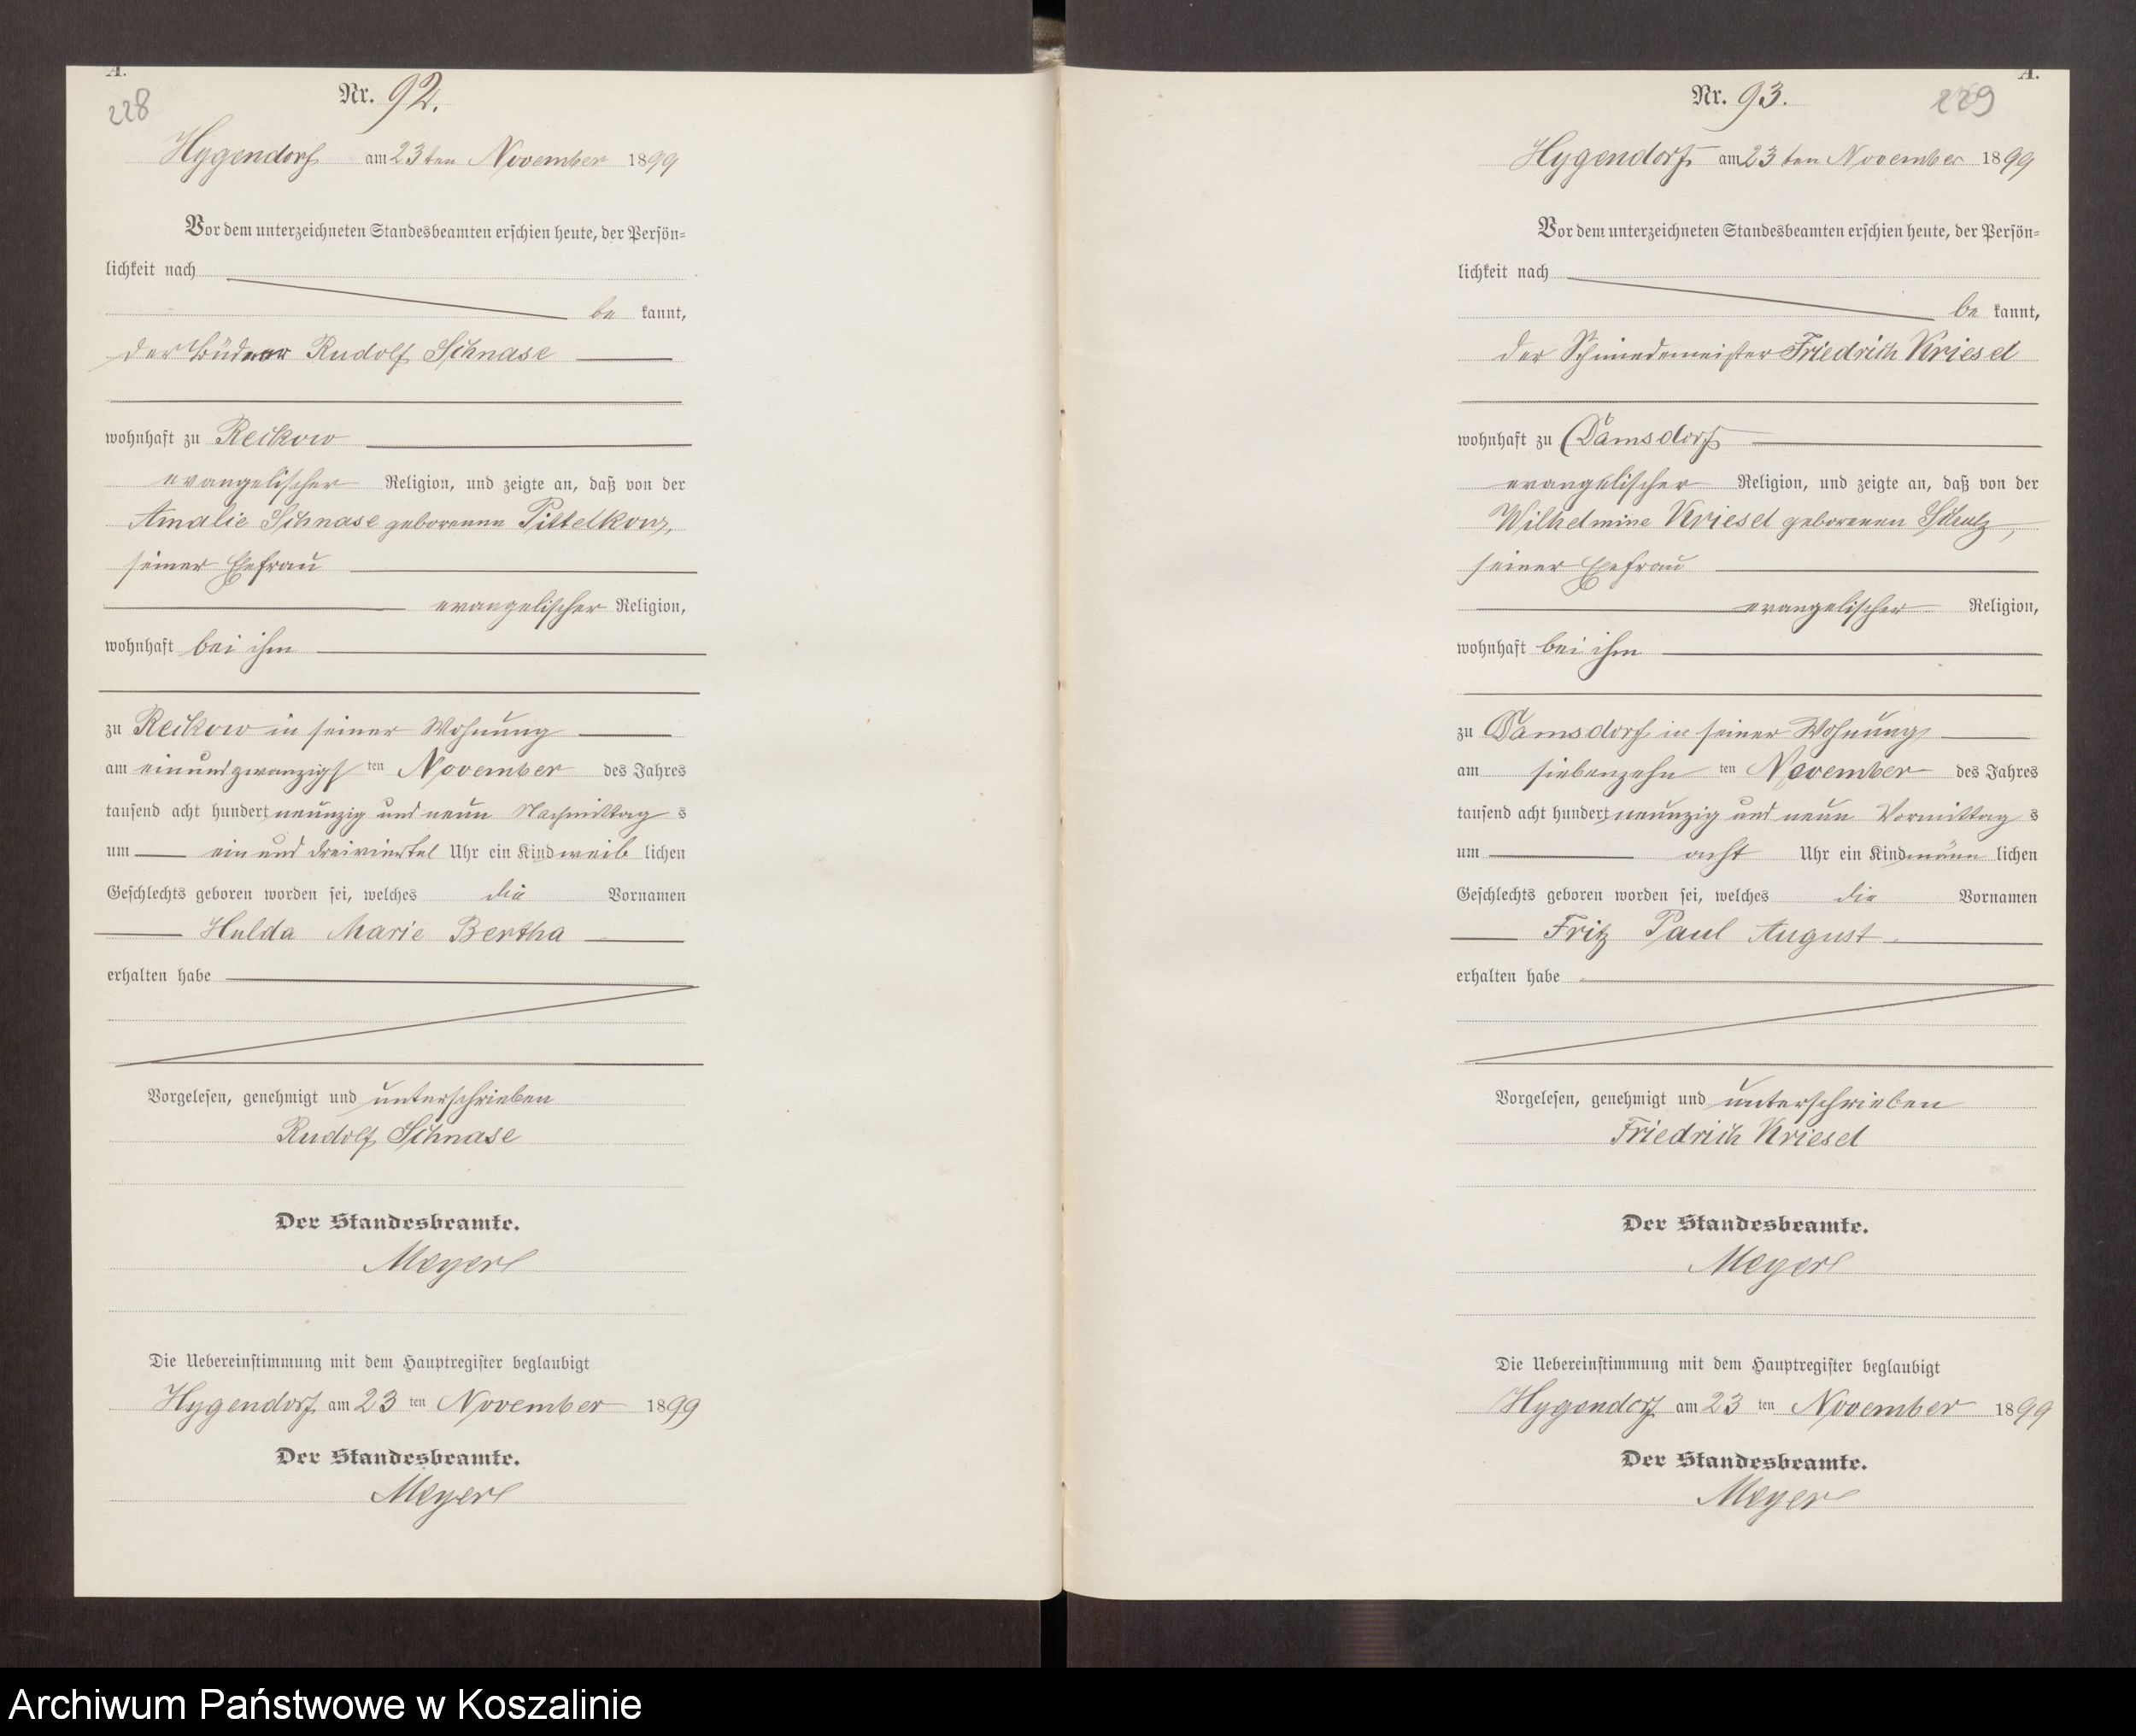 A.
228
Nr. 92.
Hygendorf am 23ten November 1899
Vor dem unterzeichneten Standesbeamten erschien heute, der Persön-
lichkeit nach
be kannt,
der Büdner Rudolf Schnase
wohnhaft zu Reckow
evangelischer Religion, und zeigte an, daß von der
Amalie Schnase geborenen Pittelkow,
seiner Ehefrau
evangelischer Religion,
wohnhaft bei ihm
zu Reckow in seiner Wohnung
am einundzwanzigsten November des Jahres
tausend acht hundert neunzig und neun Nachmittag s
um ein und dreiviertel Uhr ein Kind weib lichen
Geschlechts geboren worden sei, welches die Vornamen
Hulda Marie Bertha
erhalten habe
Vorgelesen, genehmigt und unterschrieben
Rudolf Schnase
Der Standesbeamte.
Meyer
Die Uebereinstimmung mit dem Hauptregister beglaubigt
Hygendorf am 23 ten November 1899
Der Standesbeamte.
Meyer
A.
229
Nr. 93.
Hygendorf am 23ten November 1899
Vor dem unterzeichneten Standesbeamten erschien heute, der Persön-
lichkeit nach
be kannt,
der Schmiedemeister Friedrich Kriesel
wohnhaft zu Damsdorf
evangelischer Religion, und zeigte an, daß von der
Wilhelmine Kriesel geborenen
seiner Ehefrau
evangelischer Religion,
wohnhaft bei ihm
zu Damsdorf in seiner Wohnung
am siebenzehn ten November des Jahres
tausend acht hundert neunzig und neun Vormittag s
um acht Uhr ein Kind männ lichen
Geschlechts geboren worden sei, welches die Vornamen
Fritz Paul August
erhalten habe
Vorgelesen, genehmigt und unterschrieben
Friedrich Kriesel
Der Standesbeamte.
Meyer
Die Uebereinstimmung mit dem Hauptregister beglaubigt
Hygendorf am 23 ten November 1899
Der Standesbeamte.
Meyer
Archiwum Państwowe w Koszalinie